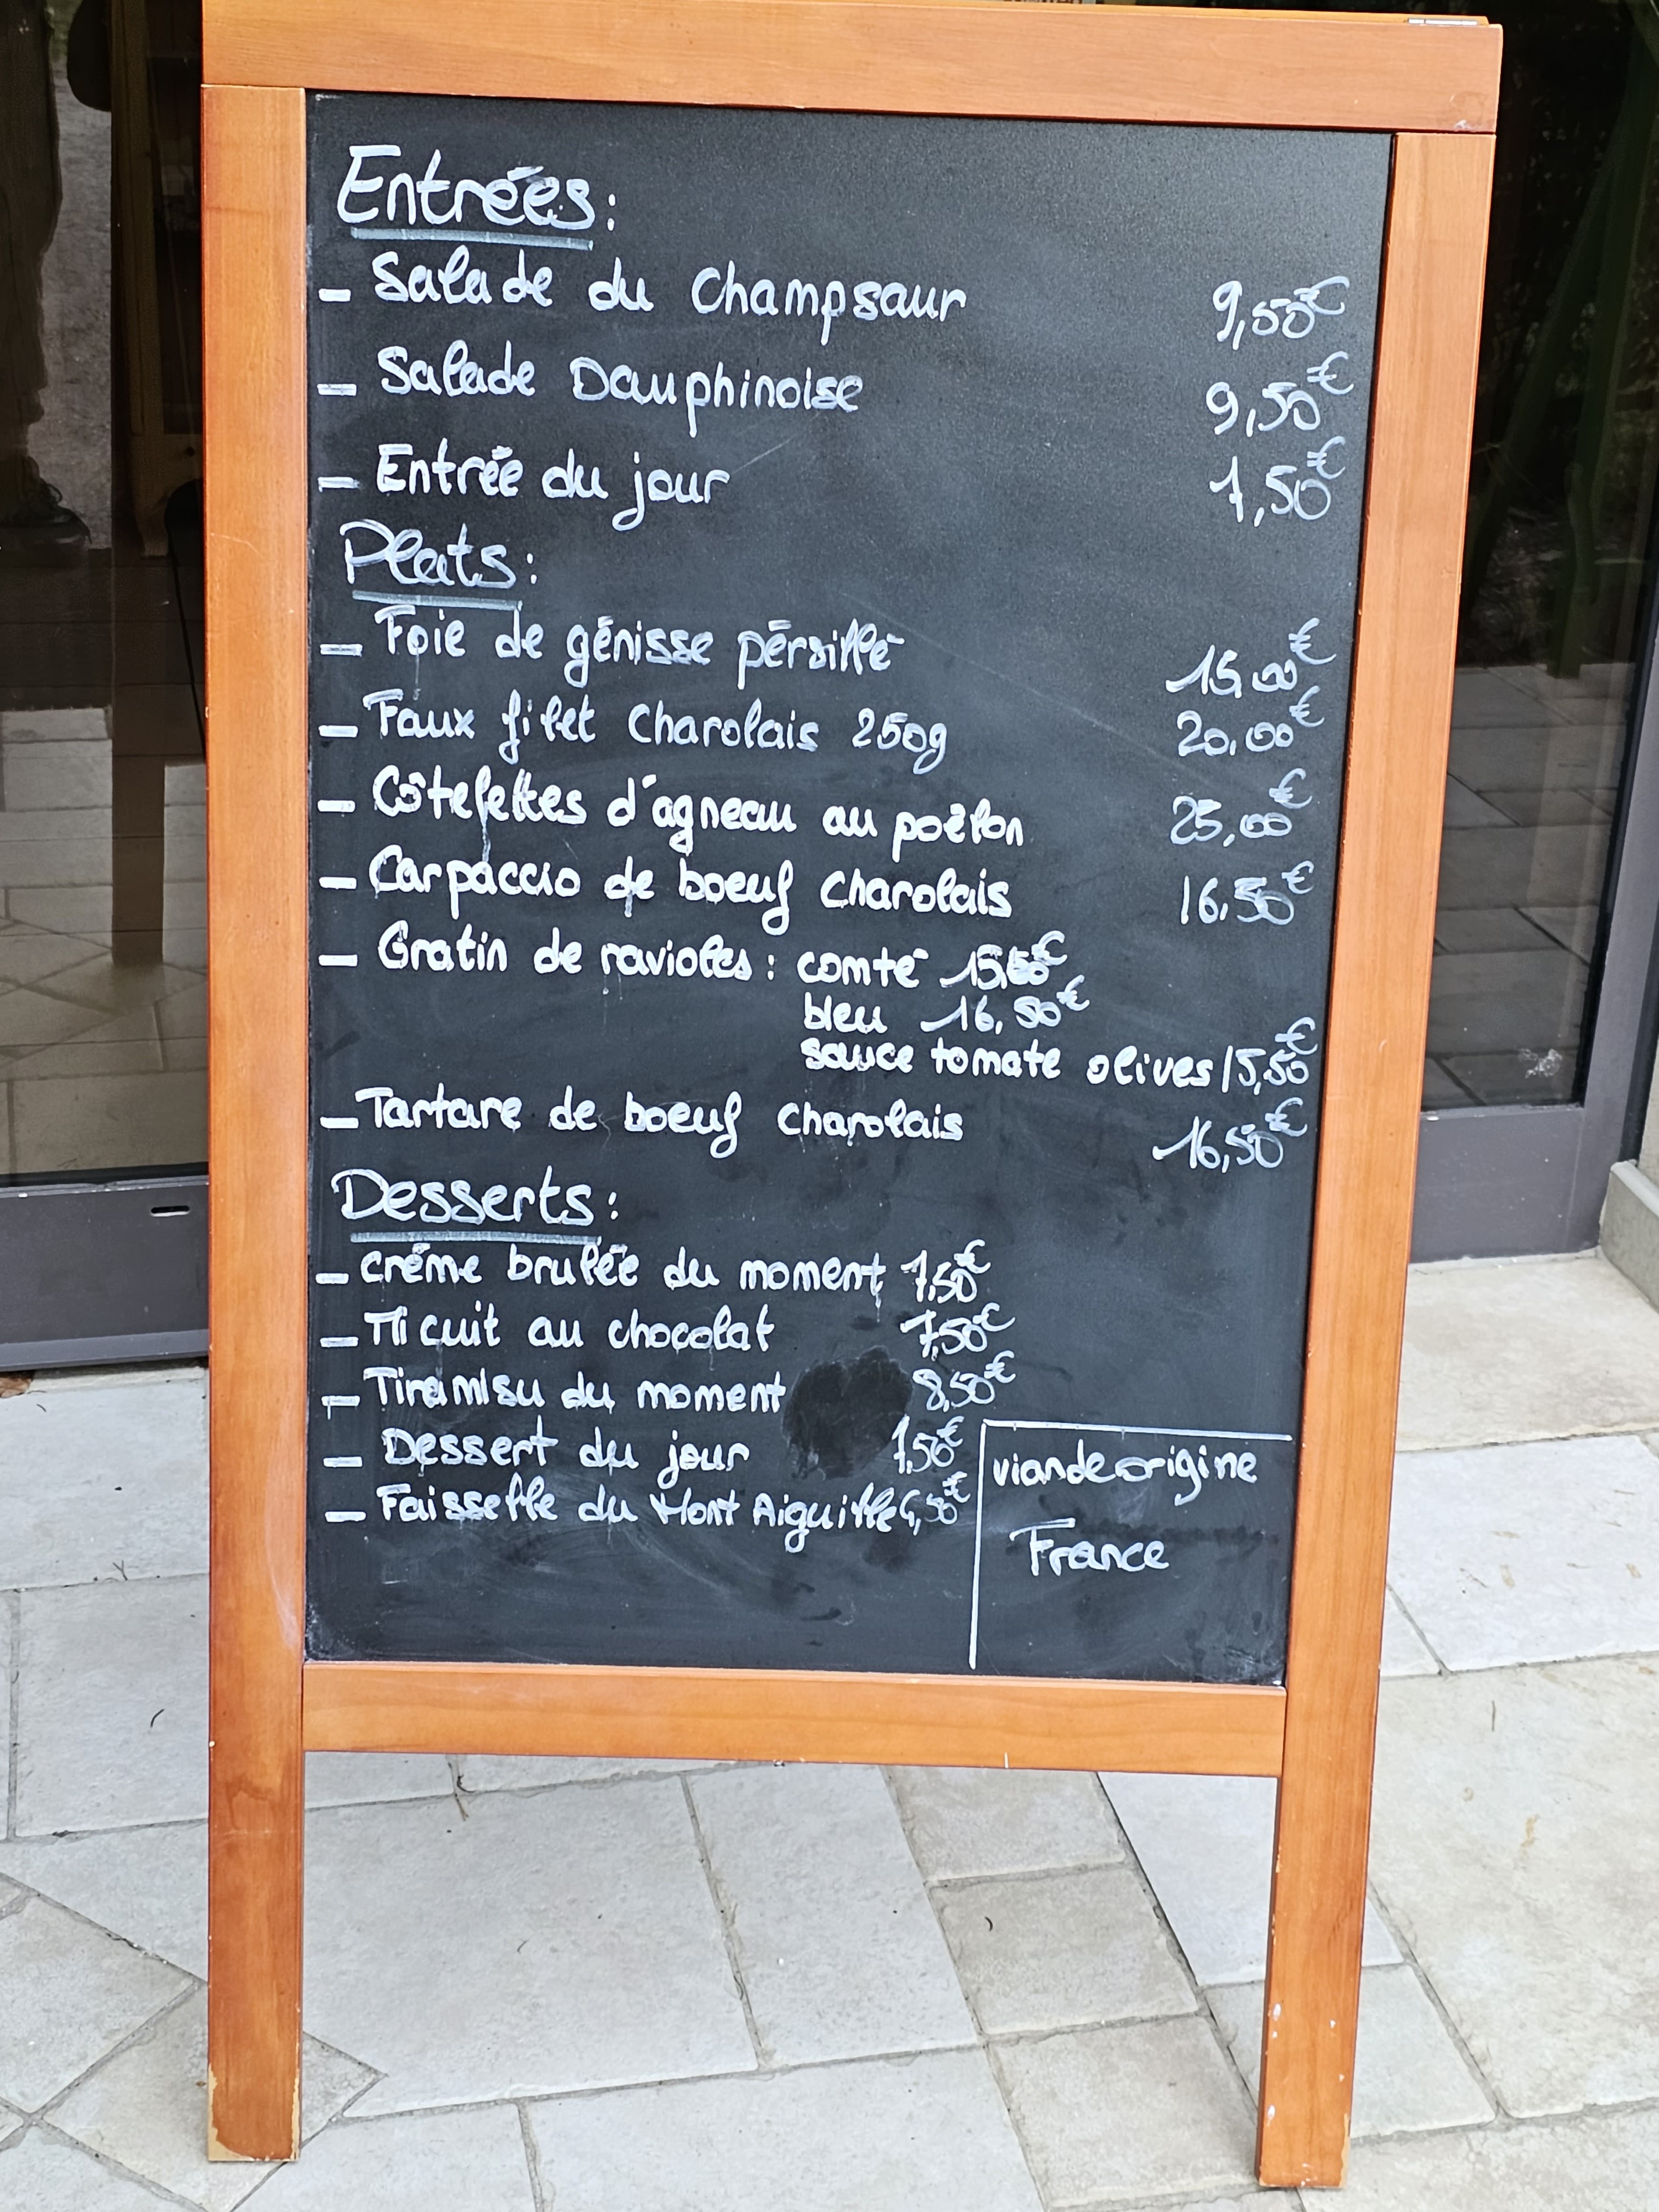 Entrées:
_ Salade du Champsaur 9,50€
_ Salade Dauphinoise 9,50€
_ Entrée du jour 7,50€
Plats:
_ Foie de génisse pérsillé 15,00€
_ Faux filet Charolais 250g 20,00€
_ Côtelettes d'agneau au poëlon 25,00€
_ Carpaccio de boeuf Charolais 16,50€
_ Gratin de ravioles: comté 15,50€
bleu 16,50€
sauce tomate olives 15,50€
_ Tartare de boeuf Charolais 16,50€
Desserts:
_ créme brulée du moment 7,50€
_ Mi cuit au chocolat 7,50€
_ Tiramisu du moment 8,50€
_ Dessert du jour 7,50€
_ Faisselle du Mont Aiguille
viande origine
France